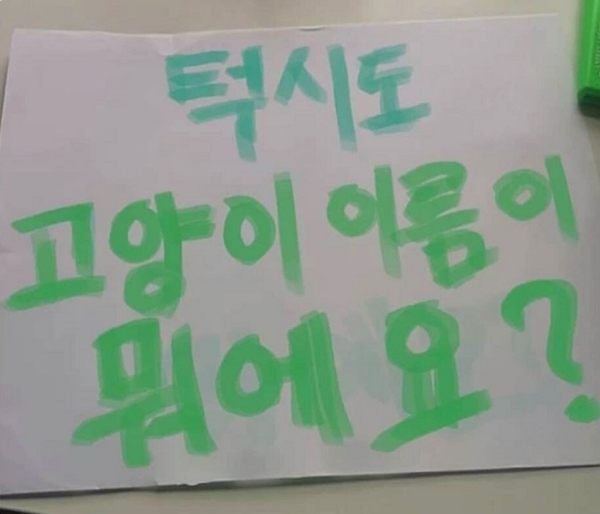 턱시도
고양이 이름이
뭐에요?